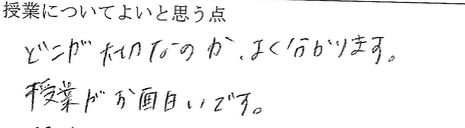 授業についてよいと思う点
どこが大切なのか、よく分かります。
授業がお面白いです。